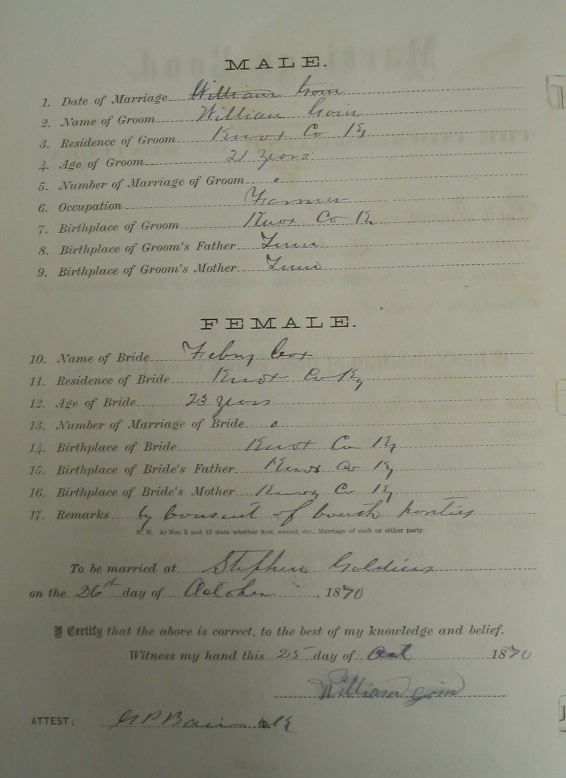 MALE.
1. Date of Marriage William Goin
2. Name of Groom William Goin
3. Residence of Groom Knox Co Ky
4. Age of Groom 21 years
5. Number of Marriage of Groom o
6. Occupation Farmer
7. Birthplace of Groom Knox Co K
8. Birthplace of Groom's Father Tenn
9. Birthplace of Groom's Mother Tenn
FEMALE.
10. Name of Bride Febry Cox
11. Residence of Bride Knox Co Ky
12. Age of Bride 23 years
13. Number of Marriage of Bride o
14. Birthplace of Bride Knox Co Ky
15. Birthplace of Bride's Father Knox Co Ky
16. Birthplace of Bride's Mother Knox Co Ky
17. Remarks by consent of bouth parties
N. B. At Nos. 5 and 13 state whether first, second, etc., Marriage of each or either party.
To be married at Stephen Goldins
on the 26th day of October, 1870
I Certify that the above is correct, to the best of my knowledge and belief.
Witness my hand this 25 day of Oct 1870
William Goin
ATTEST: